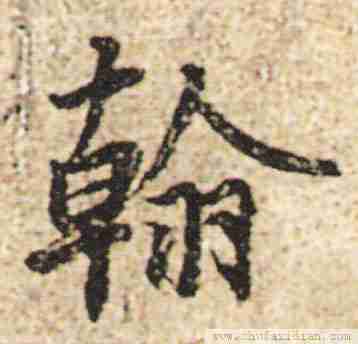 翰
www.shufazidian.com